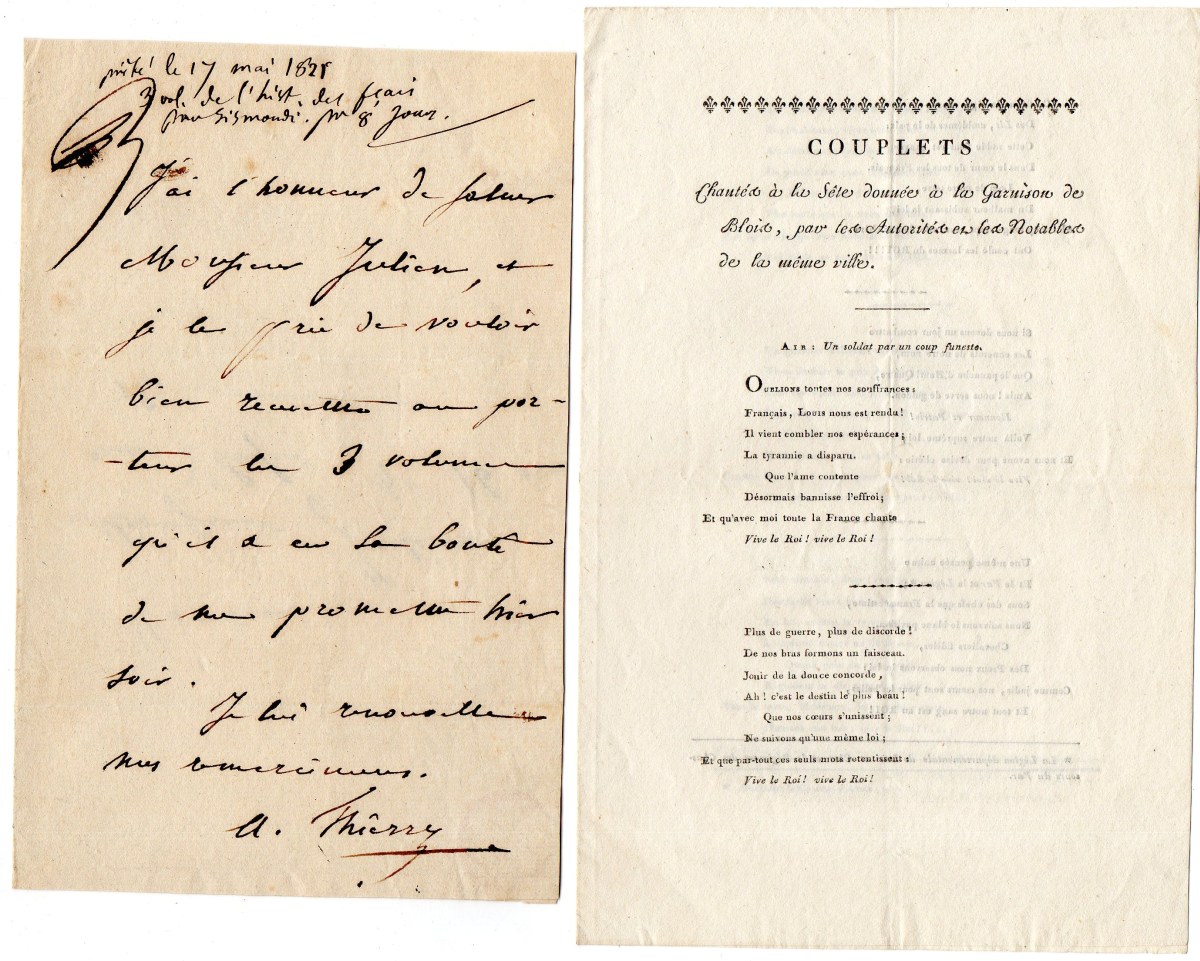 prêté le 17 mai 182
3 vol. de l'hist. des fçais
par Sismondi. pr 8 jour.
J'ai l'honneur de saluer
Monsieur Julien, et
je le prie de vouloir
bien remettre au por-
-teur les 3 volumes
qu'il a eu la bonté
de me promettre hier
soir.
Je lui renouvelle
mes remerciemens.
A. Thierry
COUPLETS
Chantés à la Fête donnée à la Garnison de
Blois, par les Autorités et les Notables
de la même ville.
AIR : Un soldat par un coup funeste.
OUBLIONS toutes nos souffrances :
Français, LOUIS nous est rendu !
Il vient combler nos espérances ;
La tyrannie a disparu.
Que l'ame contente
Désormais bannisse l'effroi ;
Et qu'avec moi toute la France chante
Vive le Roi ! vive le Roi !
Plus de guerre, plus de discorde !
De nos bras formons un faisceau.
Jouir de la douce concorde,
Ah ! c'est le destin le plus beau !
Que nos cœurs s'unissent ;
Ne suivons qu'une même loi ;
Et que par-tout ces seuls mots retentissent :
Vive le Roi ! vive le Roi !